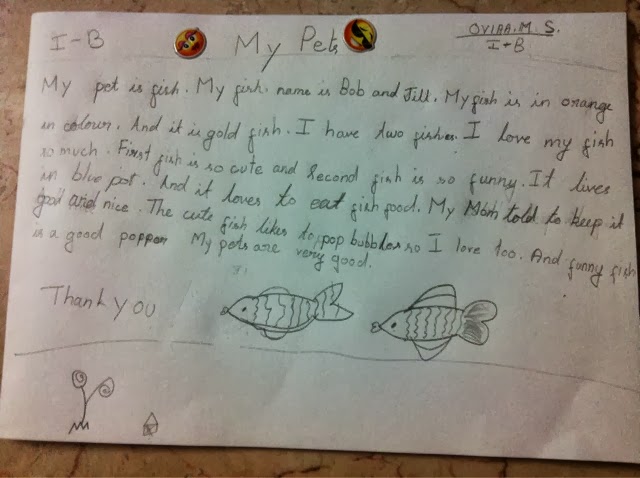 I-B
My Pets
OVIAA.M.S.
I-B
My pet is fish. My fish name is Bob and Jill. My fish is in orange
in colour. And it is gold fish. I have two fishes. I love my fish
so much. First fish is so cute and second fish is so funny. It lives
in blue pot. And it loves to eat fish food. My Mom told to keep it
good and nice. The cute fish likes to pop bubbles so I love too. And funny fish
is a good popper My pets are very good.
Thank you